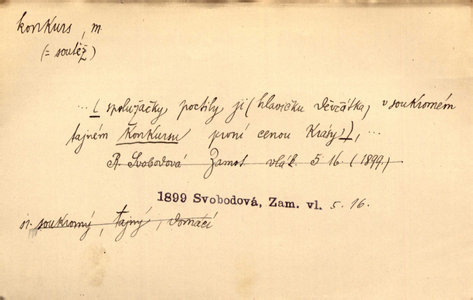 konkurs, m.
(= soutěž)
... ( spolužačky poctily ji (hlavičku děvčátka) v soukromém
tajném konkursu první cenou krásy), ...
R. Svobodová Zamot. vlák. 5 16. (1899)
1899 Svobodová, Zam. vl. 5. 16.
soukromý, tajný, domácí